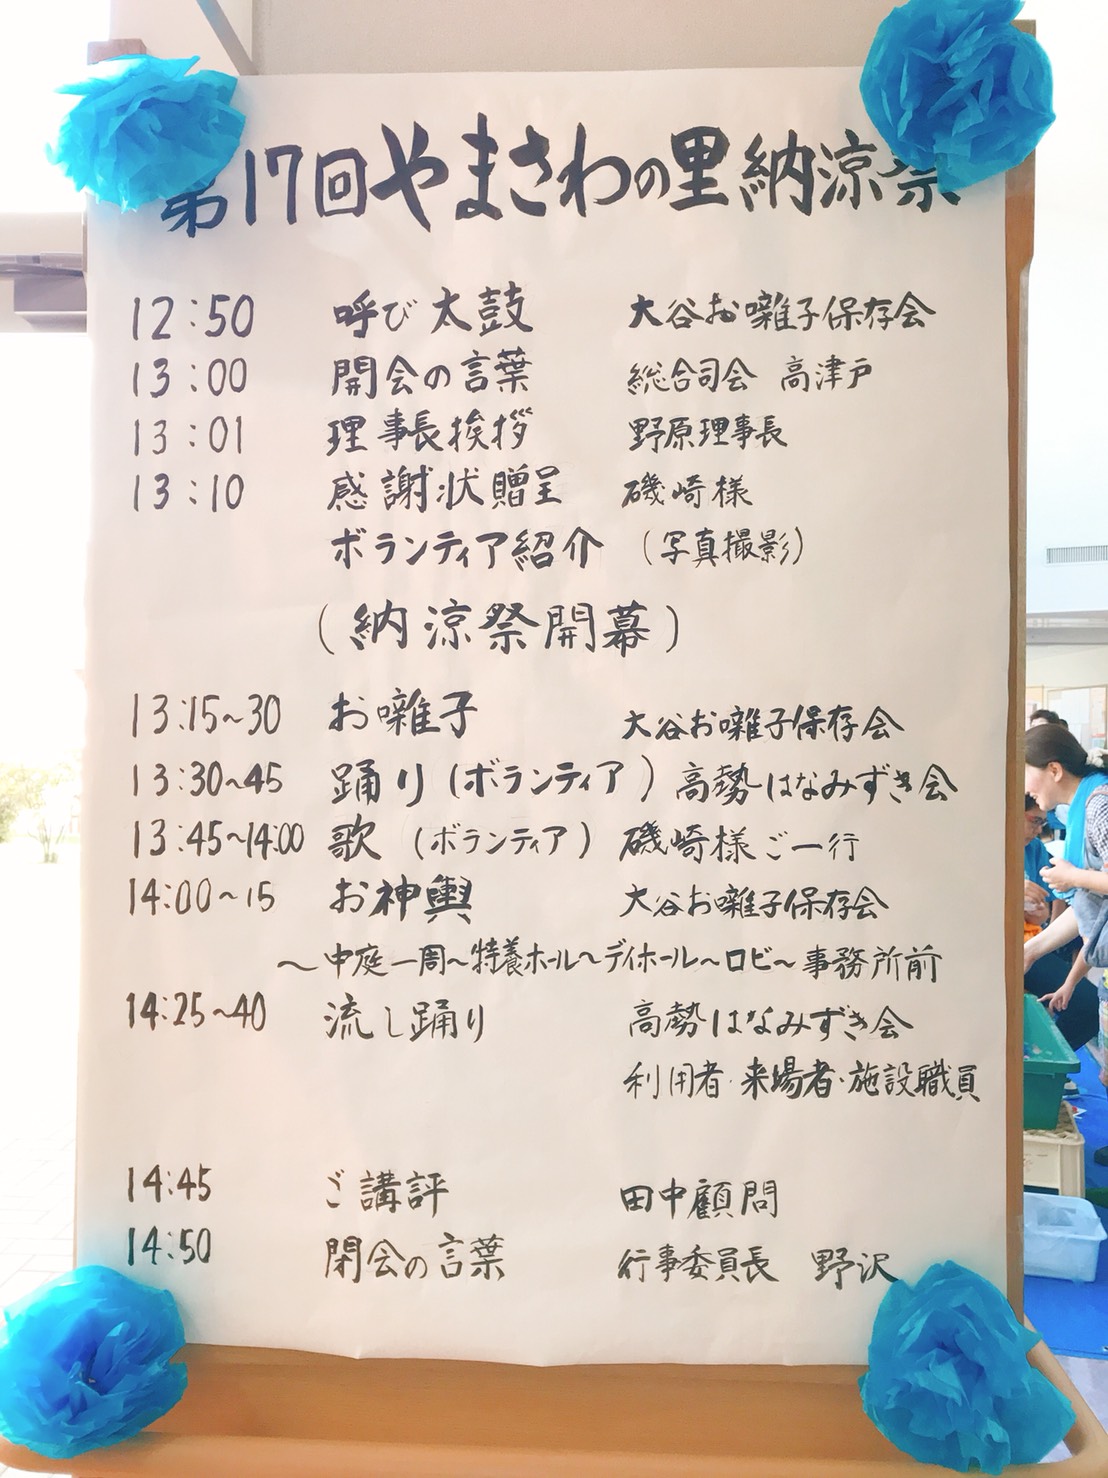 第17回やまさわの里納涼祭
12:50 呼び太鼓 大谷お囃子保存会
13:00 開会の言葉 総合司会 高津戸
13:01 理事長挨拶 野原理事長
13:10 感謝状贈呈 磯崎様
ボランティア紹介 (写真撮影)
(納涼祭開幕)
13:15~30 お囃子 大谷お囃子保存会
13:30~45 踊り(ボランティア) 高勢はなみずき会
13:45~14:00 歌 (ボランティア) 磯崎様ご一行
14:00~15 お神輿 大谷お囃子保存会
~中庭一周~特養ホール~デイホール~ロビー~事務所前
14:25~40 流し踊り 高勢はなみずき会
利用者・来場者・施設職員
14:45 ご講評 田中顧問
14:50 閉会の言葉 行事委員長 野沢